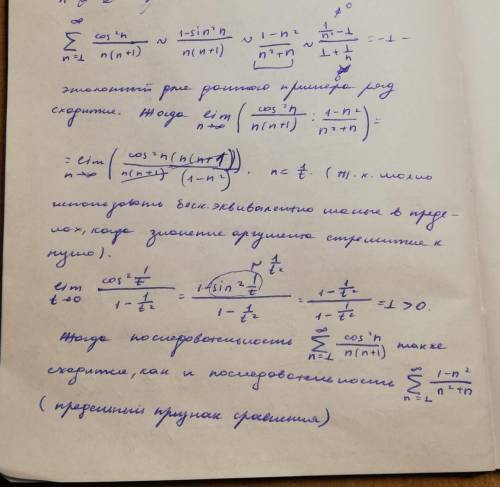 ∞ ∑ n=1 cos²n / n(n+1) ~ 1-sin²n / n(n+1) ~ 1-n² / n²+n ~ (1/n² - 1) / (1 + 1/n) = -1 -
эталонный для данного примера ряд
сходится. Тогда lim n→∞ ( cos²n / n(n+1) : 1-n² / n²+n ) =
= lim n→∞ ( cos²n (n(n+1)) / n(n+1) (1-n²) ). n = 1/t. (т.к. можно
использовать беск. эквивалентно малые в преде-
лах, когда значение аргумента стремится к
нулю).
lim t→0 cos² 1/t / 1 - 1/t² = 1 - sin² 1/t / 1 - 1/t² = 1 - 1/t² / 1 - 1/t² = 1 > 0.
~ 1/t²
Тогда последовательность ∞ ∑ n=1 cos²n / n(n+1) также
сходится, как и последовательность ∞ ∑ n=1 1-n² / n²+n
(предельный признак сравнения)